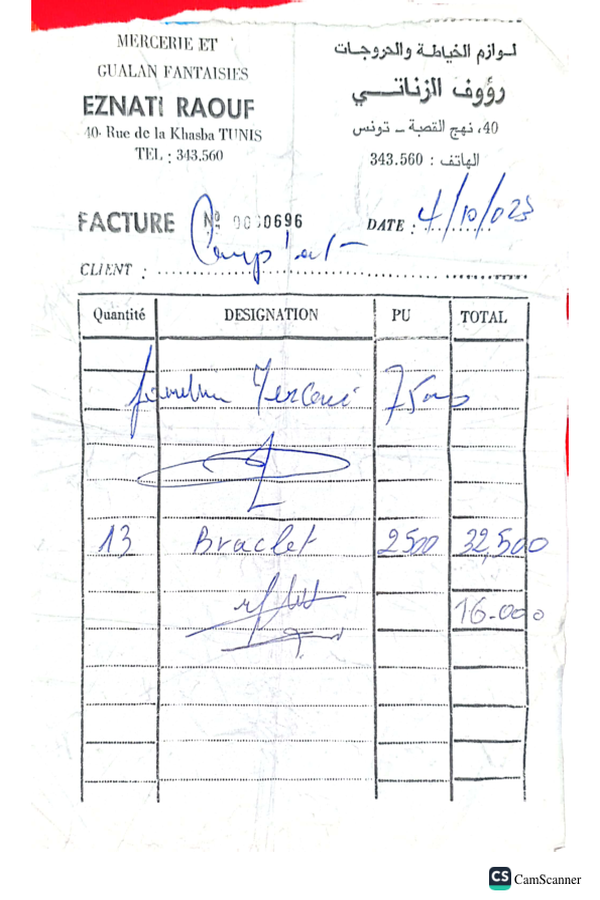 MERCERIE ET
GUALAN FANTAISIES
EZNATI RAOUF
40- Rue de la Khasba TUNIS
TEL : 343.560
لـوازم الخياطـة والحروجـات
رؤوف الزناتـــي
40، نهج القصبة ــ تونس
الهاتف : 343.560
FACTURE № 0000696
DATE : 4/10/023
CLIENT :
Quantité DESIGNATION PU TOTAL
13 Braclet 2500 32,500
16.000